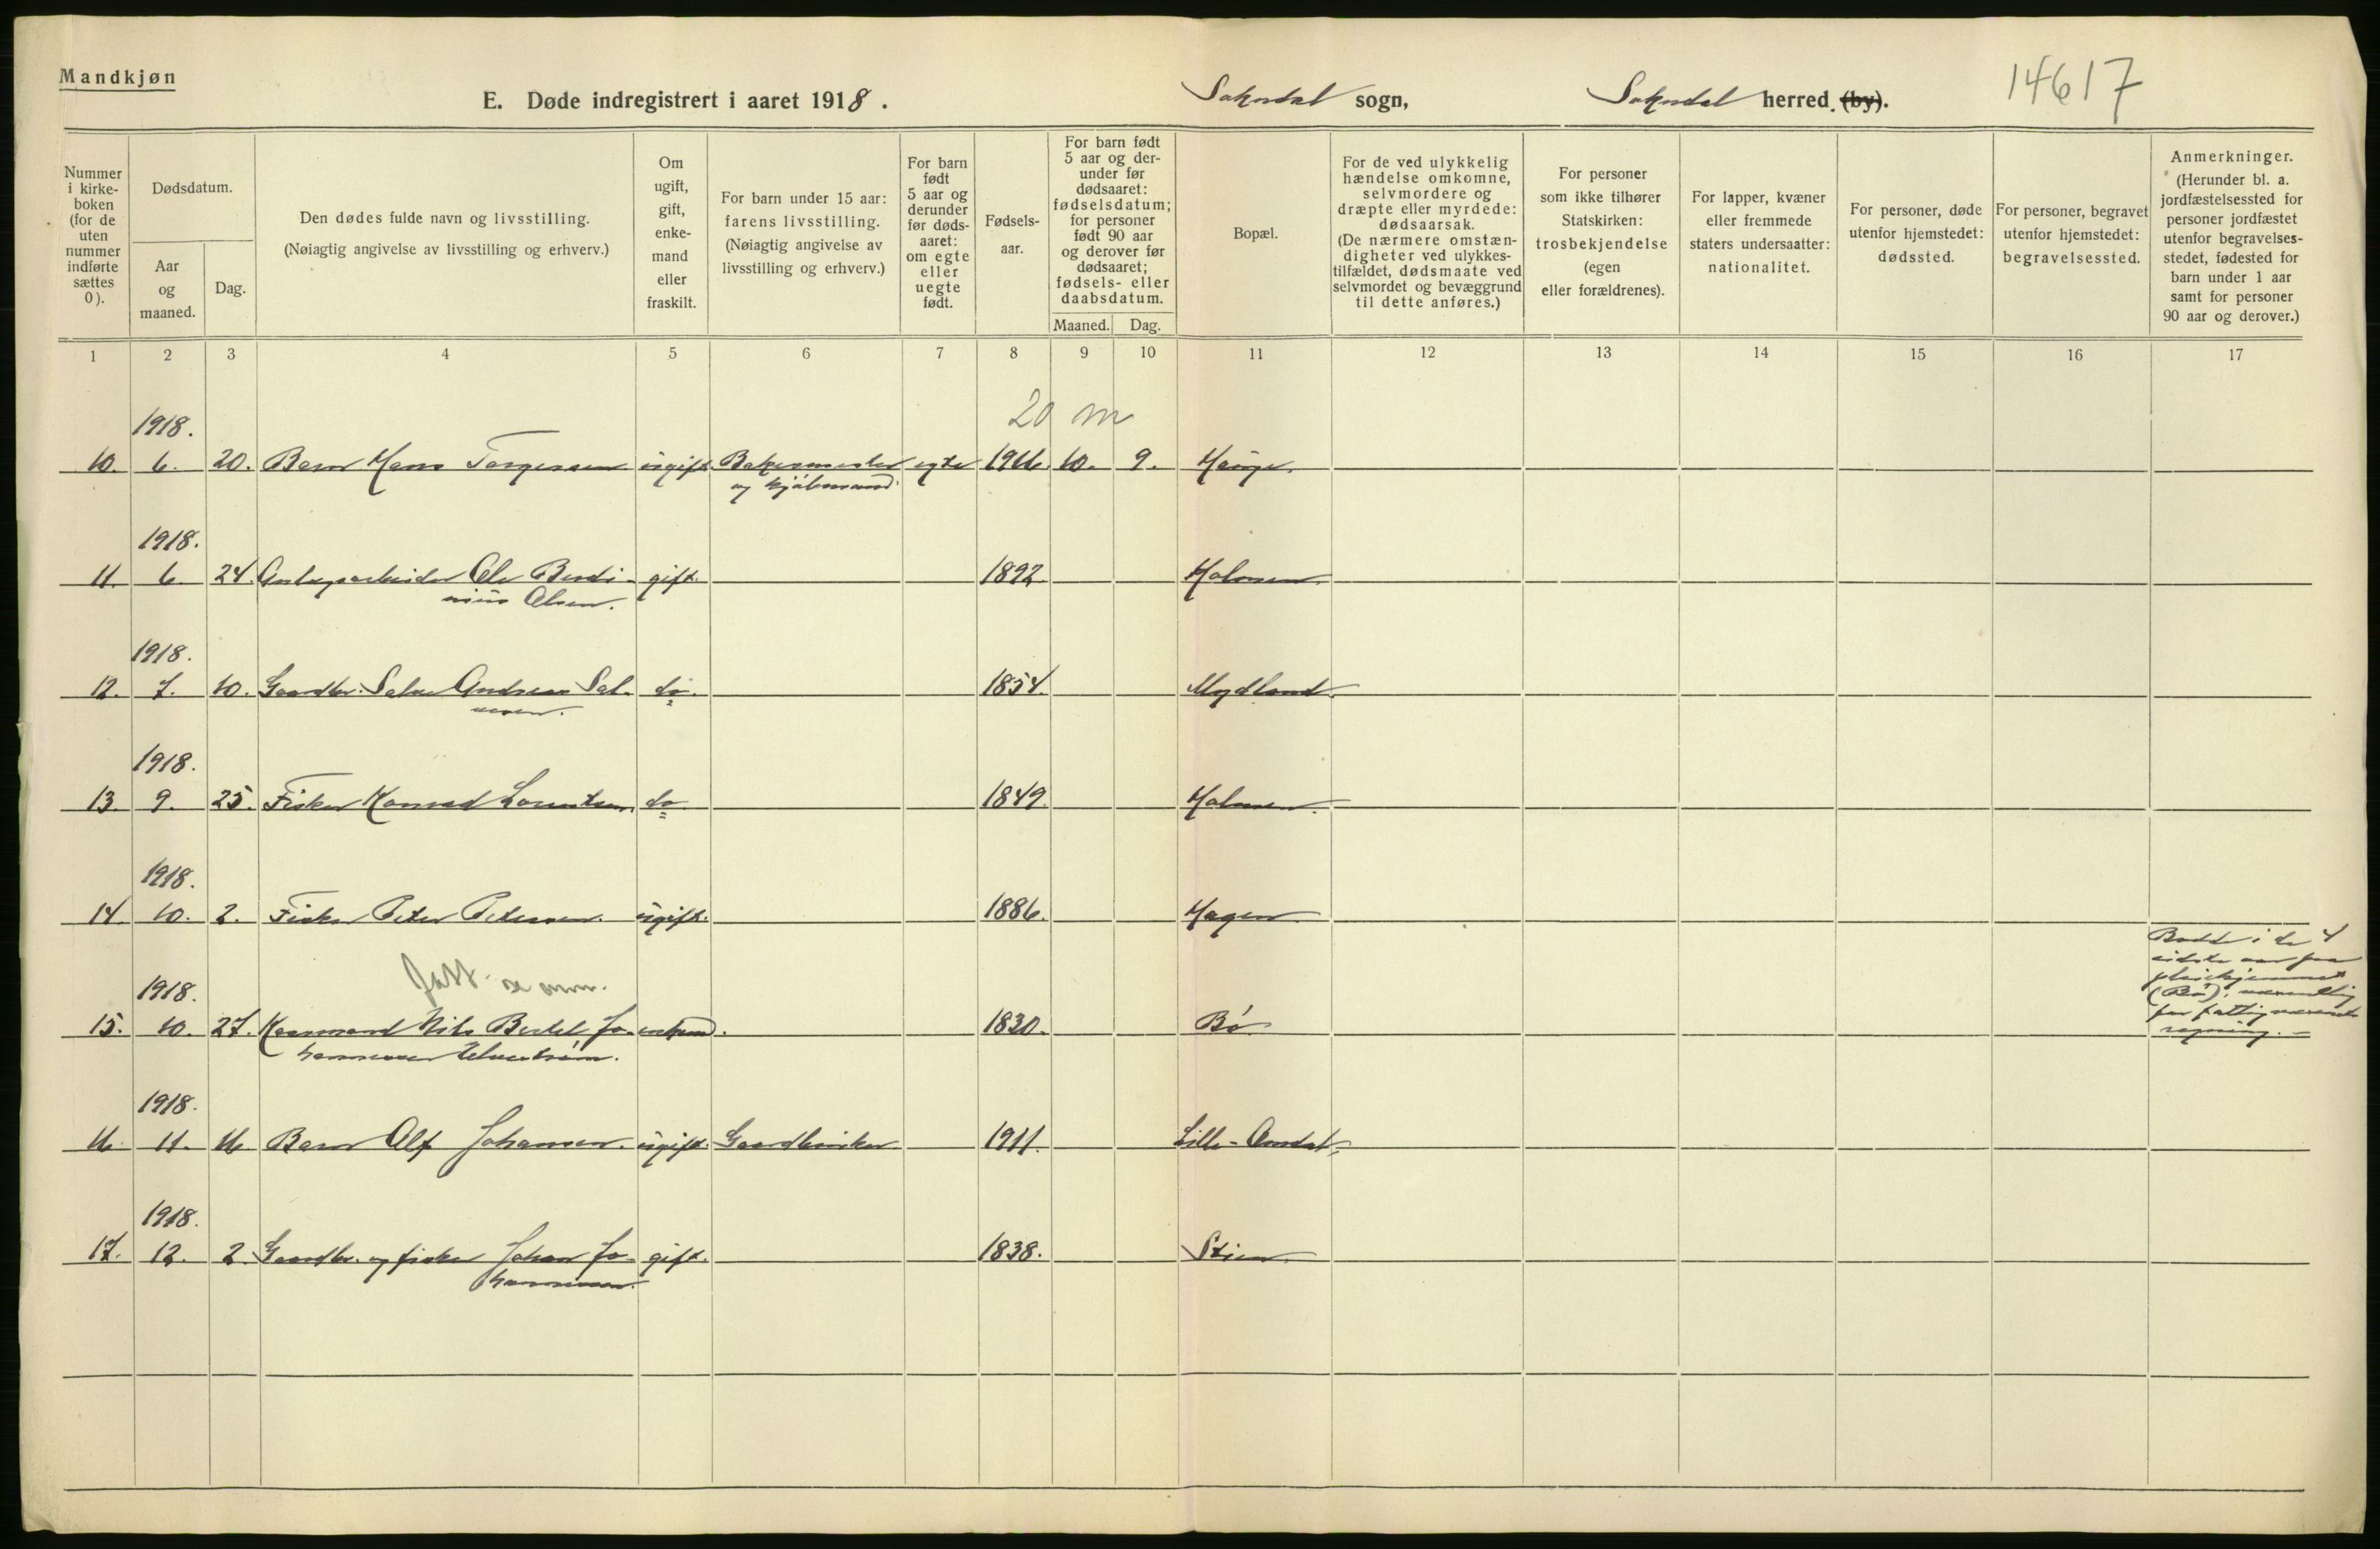 Mandkjøn
E. Døde indregistrert i aaret 1918.
Sokndal sogn,
Sokndal herred (by).
14617
Nummer i kirke-boken (for de uten nummer indførte sættes 0).
Dødsdatum.
Aar og maaned.
Dag.
Den dødes fulde navn og livsstilling.
(Nøiagtig angivelse av livsstilling og erhverv.)
Om ugift, gift, enke-mand eller fraskilt.
For barn under 15 aar: farens livsstilling.
(Nøiagtig angivelse av livsstilling og erhverv.)
For barn født 5 aar og derunder før døds-aaret: om egte eller uegte født.
Fødsels-aar.
For barn født 5 aar og der-under før dødsaaret: fødselsdatum; for personer født 90 aar og derover før dødsaaret; fødsels- eller daabsdatum.
Maaned.
Dag.
Bopæl.
For de ved ulykkelig hændelse omkomne, selvmordere og dræpte eller myrdede: dødsaarsak.
(De nærmere omstæn-digheter ved ulykkes-tilfældet, dødsmaate ved selvmordet og bevæggrund til dette anføres.)
For personer som ikke tilhører Statskirken: trosbekjendelse (egen eller forældrenes).
For lapper, kvæner eller fremmede staters undersaatter: nationalitet.
For personer, døde utenfor hjemstedet: dødssted.
For personer, begravet utenfor hjemstedet: begravelsessted.
Anmerkninger.
(Herunder bl. a. jordfæstelsessted for personer jordfæstet utenfor begravelses-stedet, fødested for barn under 1 aar samt for personer 90 aar og derover.)
1 2 3 4 5 6 7 8 9 10 11 12 13 14 15 16 17
20 m
1918.
10. 6. 20. Barn Hans Torgersen ugift. Bakermester egte 1916. 10. 9. Hauge.
og kjøbmand.
1918.
11. 6. 24. Anlægsarbeider Ole Berdi- gift. 1892. Holmen.
nius Olsen.
1918.
12. 7. 10. Gaardbr. Salve Andreas Sal- do. 1854. Mydland.
vesen.
1918.
13. 9. 25. Fisker Konrad Lorentsen, do. 1849. Holmen.
1918.
14. 10. 2. Fisker Peter Petersen. ugift. 1886. Hagen
Fatt. se anm.
1918.
15. 10. 27. Kaarmand Nils Bertel Jo- enkem. 1830. Bø
hannessen
Bodde i de 4
sidste aar paa
pleiehjemmet
(Bø), væsentlig
for fattigvæsenets
regning.
1918.
16. 11. 16. Barn Alf Johansen. ugift. Gaardbruker 1911. Lille-Omdal
1918.
17. 12. 2. Gaardbr. og fisker Johan Jo- gift. 1838. Stien
hannessen.